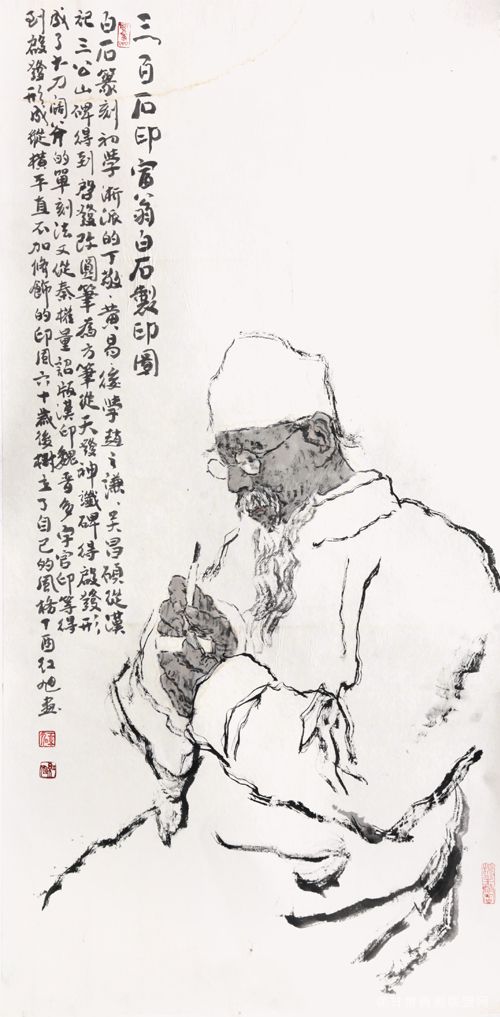 三百石印富翁白石製印圖
白石篆刻初學浙派的丁敬、黄易後學趙之謙、吴昌碩從漢
祀三公山碑得到啓發改圓筆為方筆從天發神讖碑得啟發形
成了大刀阔斧的單刻法又從秦權量詔版漢印魏晋多字官印等得
到啟發形成縱横平直不加修飾的印風六十歲後樹立了自己的風格丁酉红旭畫